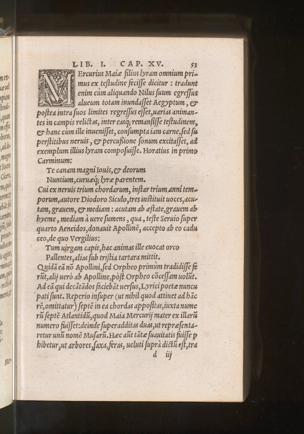 LIB. I. CAP. XV. 53
MErcurius Maiæ filius lyram omnium pri-
mus ex testudine fecisse dicitur : tradunt
enim cum aliquando Nilus suum egressus
alueum totam inundasset Aegyptum, &
postea intra suos limites regressus esset, varias animan-
tes in campis relictas, inter easq; remansisse testudinem,
& hanc cum ille inuenisset, consumpta iam carne, sed su
perstitibus neruis, & percussione sonum excitasset, ad
exemplum illius lyram composuisse. Horatius in primo
Carminum:
Te canam magni Iouis, & deorum
Nuncium, curuæq; lyræ parentem.
Cui ex neruis trium chordarum, instar trium anni tem-
porum, autore Diodoro Siculo, tres instituit uoces, acu-
tam, grauem, & mediam : acutam ab æstate, grauem ab
hyeme, mediam à uere sumens, qua, teste Seruio super
quarto Aeneidos, donauit Apollinē, accepto ab eo cadu
ceo, de quo Vergilius:
Tum uirgam capit, hac animas ille euocat orco
Pallentes, alias sub tristia tartara mittit.
Quidā eā nō Apollini, sed Orpheo primùm tradidisse fe
rūt, alij uerò ab Apolline, pòst Orpheo cōcessam uolūt.
Ad eā qui decātādos faciebāt uersus, Lyrici poetæ nuncu
pati sunt. Reperio insuper (ut nihil quod attinet ad hāc
rē, omittatur) septē in ea chordas appositas, iuxta nume
rū septē Atlantidū, quod Maia Mercurij mater ex illarū
numero fuisset: deinde superadditas duas, ut repræsenta-
retur unū nouē Musarū. Hæc aūt tātæ suauitatis fuisse p
hibetur, ut arbores, saxa, feras, ueluti suprà dictū est, tra
d iij